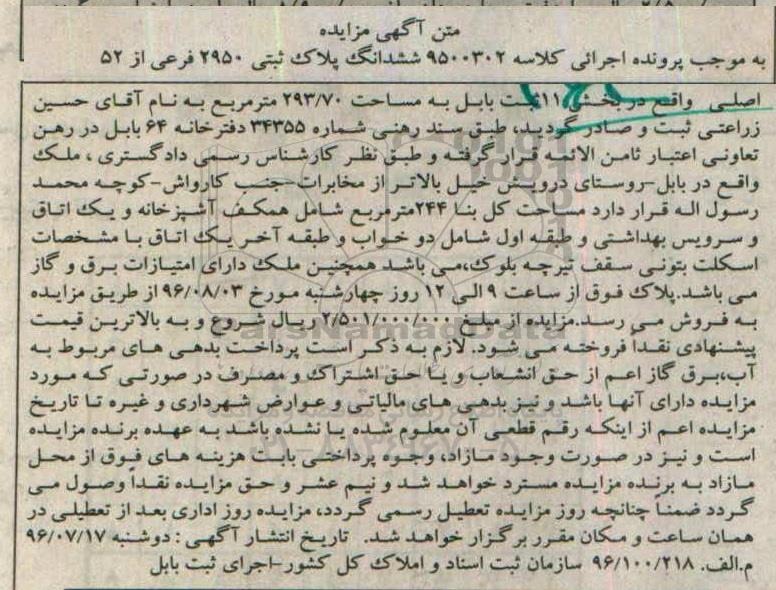 متن آگهی مزایده
به موجب پرونده اجرائی کلاسه ۹۵۰۰۳۰۲ ششدانگ پلاک ثبتی ۲۹۵۰ فرعی از ۵۲
اصلی واقع در بخش ۱۱ ثبت بابل به مساحت ۲۹۳/۷۰ مترمربع به نام آقای حسین
زراعتی ثبت و صادر گردید، طبق سند رهنی شماره ۳۴۳۵۵ دفترخانه ۶۴ بابل در رهن
تعاونی اعتبار ثامن الائمه قرار گرفته و طبق نظر کارشناس رسمی دادگستری ، ملک
واقع در بابل-روستای درویش خیل بالاتر از مخابرات-جنب کارواش-کوچه محمد
رسول اله قرار دارد مساحت کل بنا ۲۴۴مترمربع شامل همکف آشپزخانه و یک اتاق
و سرویس بهداشتی و طبقه اول شامل دو خواب و طبقه آخر یک اتاق با مشخصات
اسکلت بتونی سقف تیرچه بلوک،می باشد همچنین ملک دارای امتیازات برق و گاز
می باشد.پلاک فوق از ساعت ۹ الی ۱۲ روز چهارشنبه مورخ ۹۶/۰۸/۰۳ از طریق مزایده
به فروش می رسد.مزایده از مبلغ ۲/۵۰۱/۰۰۰/۰۰۰ریال شروع و به بالاترین قیمت
پیشنهادی نقداً فروخته می شود. لازم به ذکر است پرداخت بدهی های مربوط به
آب،برق گاز اعم از حق انشعاب و یا حق اشتراک و مصرف در صورتی که مورد
مزایده دارای آنها باشد و نیز بدهی های مالیاتی و عوارض شهرداری و غیره تا تاریخ
مزایده اعم از اینکه رقم قطعی آن معلوم شده یا نشده باشد به عهده برنده مزایده
است و نیز در صورت وجود مازاد، وجوه پرداختی بابت هزینه های فوق از محل
مازاد به برنده مزایده مسترد خواهد شد و نیم عشر و حق مزایده نقداً وصول می
گردد ضمناً چنانچه روز مزایده تعطیل رسمی گردد، مزایده روز اداری بعد از تعطیلی در
همان ساعت و مکان مقرر برگزار خواهد شد. تاریخ انتشار آگهی : دوشنبه ۹۶/۰۷/۱۷
م.الف. ۹۶/۱۰۰/۲۱۸ سازمان ثبت اسناد و املاک کل کشور-اجرای ثبت بابل
ParsNamadData